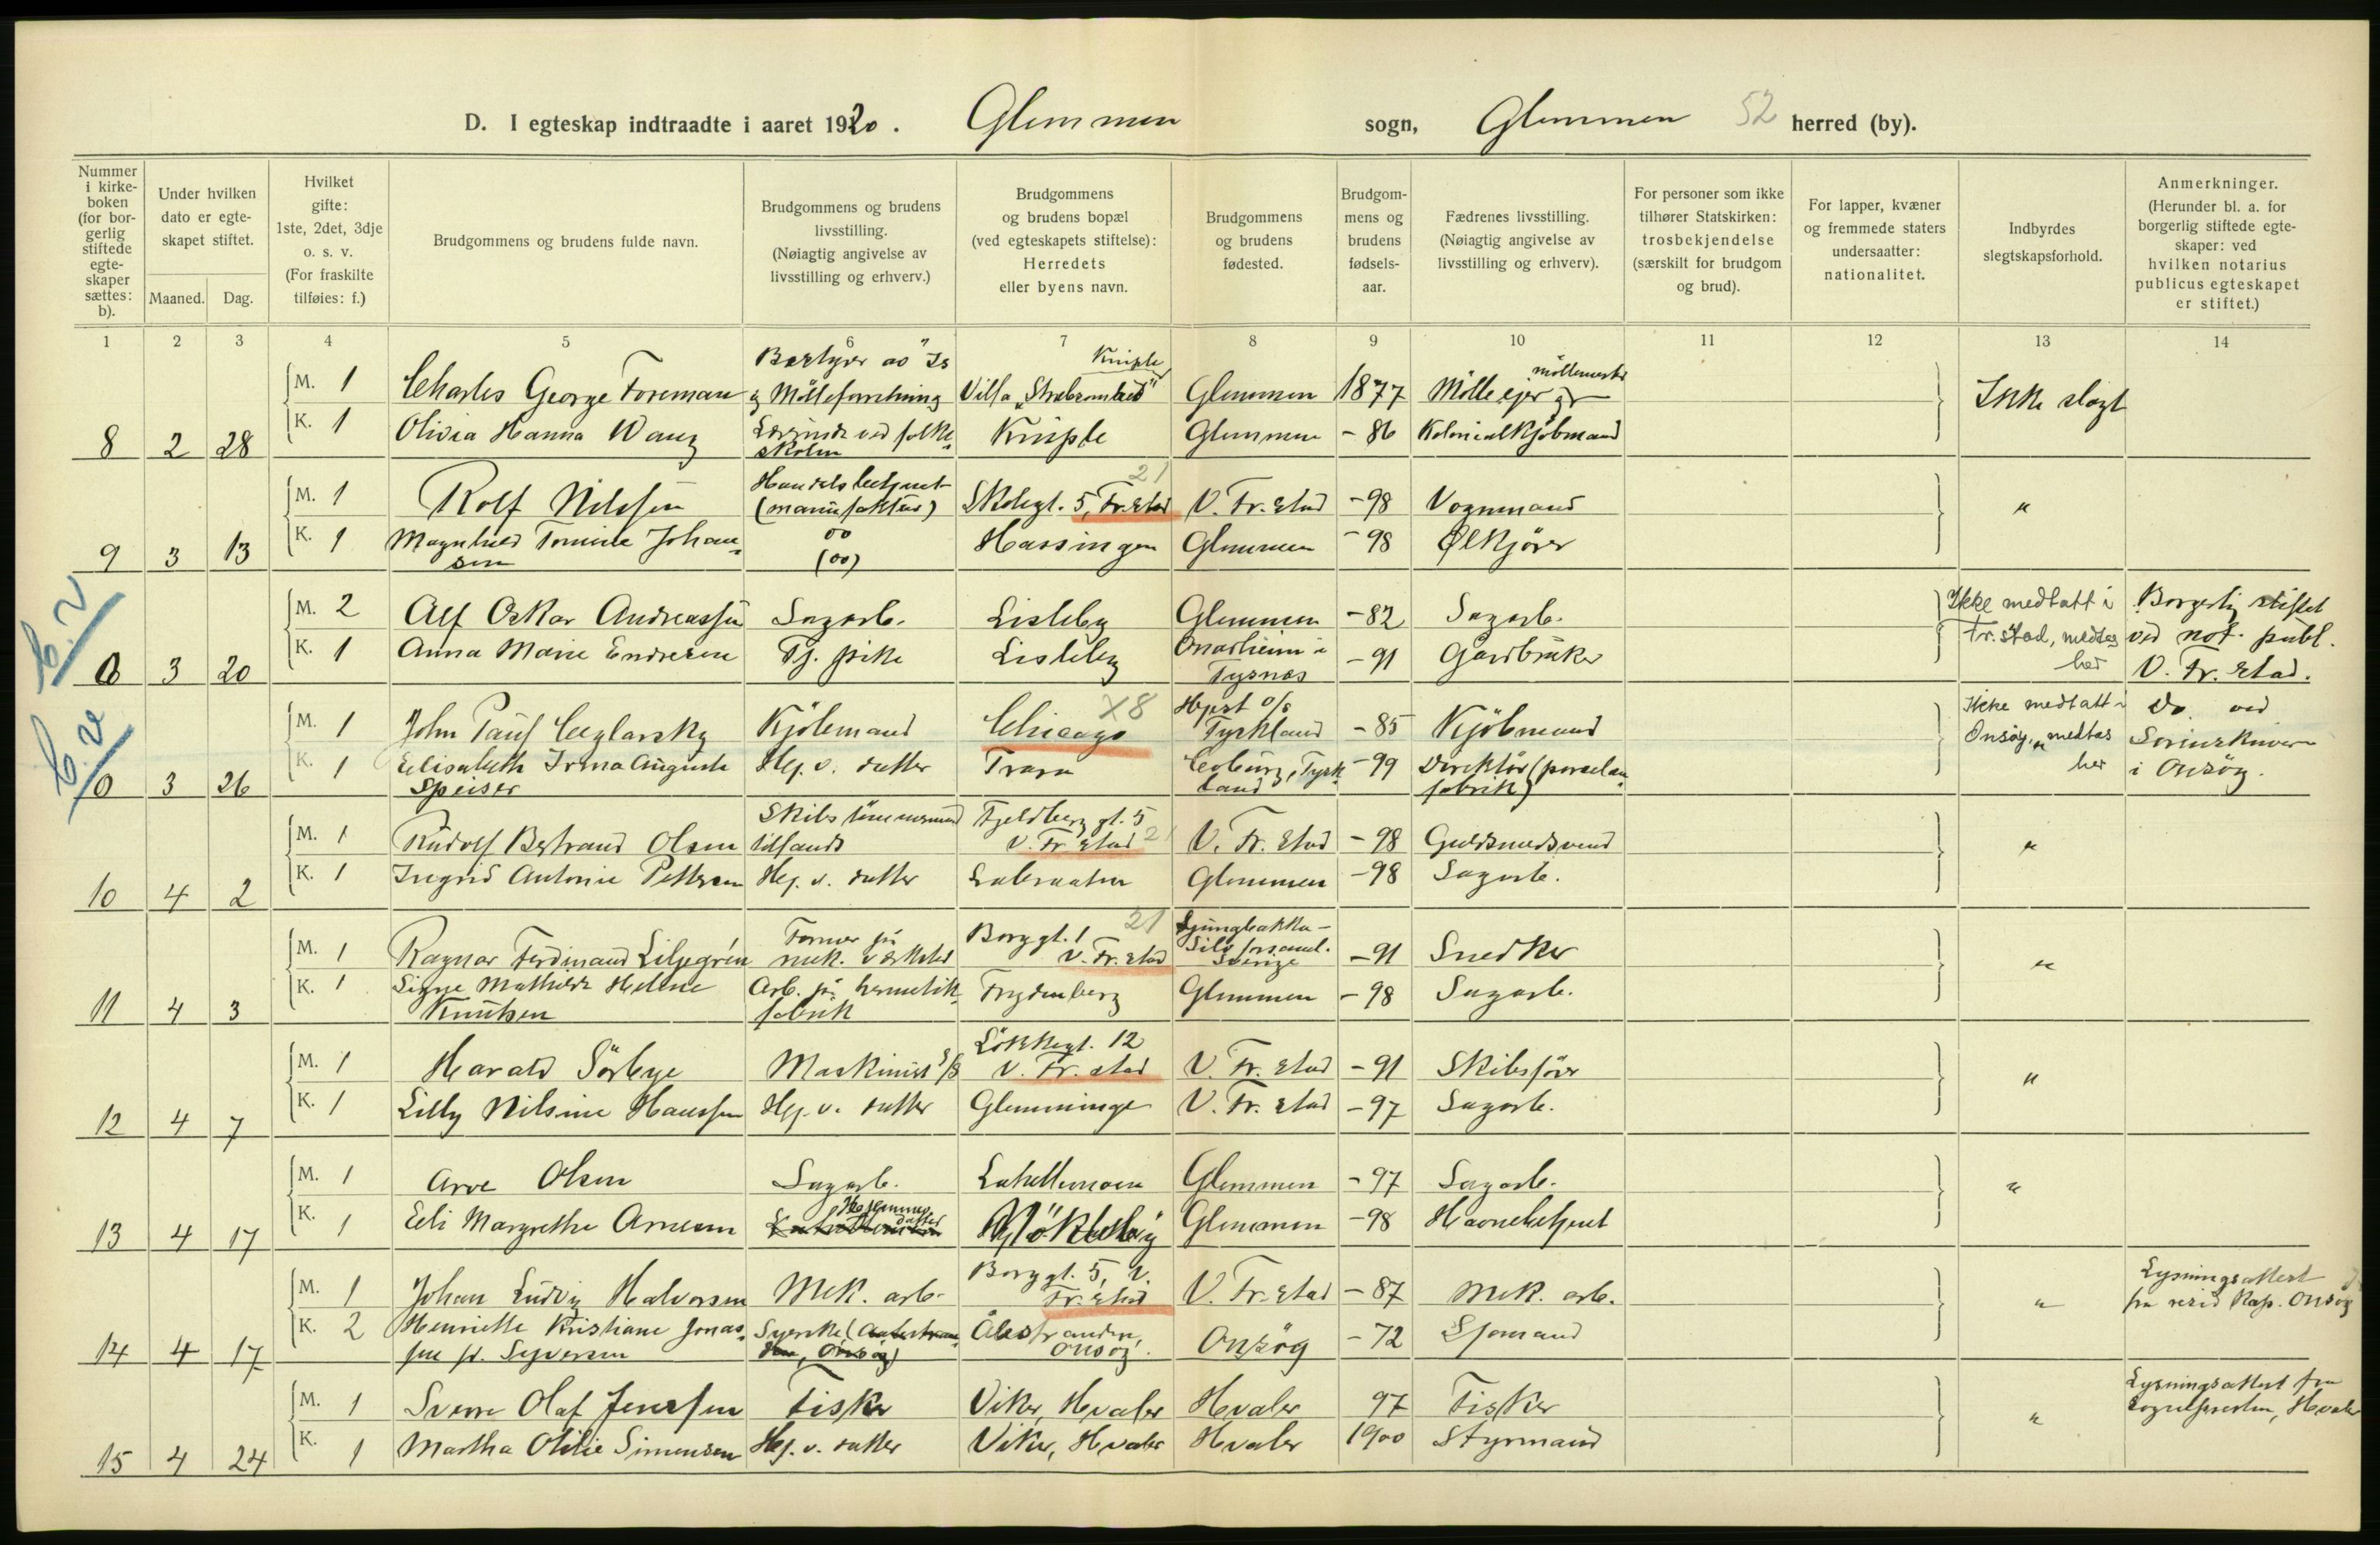 D. I egteskap indtraadte i aaret 1920. Glemmen sogn, Glemmen 52 herred (by).
Nummer i kirkeboken (for borgerlig stiftede egteskaper sættes: b).
Under hvilken dato er egteskapet stiftet.
Maaned. Dag.
Hvilket gifte: 1ste, 2det, 3dje o. s. v. (For fraskilte tilføies: f.)
Brudgommens og brudens fulde navn.
Brudgommens og brudens livsstilling. (Nøiagtig angivelse av livsstilling og erhverv.)
Brudgommens og brudens bopæl (ved egteskapets stiftelse): Herredets eller byens navn.
Brudgommens og brudens fødested.
Brudgommens og brudens fødsels-aar.
Fædrenes livsstilling. (Nøiagtig angivelse av livsstilling og erhverv).
For personer som ikke tilhører Statskirken: trosbekjendelse (særskilt for brudgom og brud).
For lapper, kvæner og fremmede staters undersaatter: nationalitet.
Indbyrdes slegtskapsforhold.
Anmerkninger. (Herunder bl. a. for borgerlig stiftede egteskaper: ved hvilken notarius publicus egteskapet er stiftet.)
1 2 3 4 5 6 7 8 9 10 11 12 13 14
M. 1 Charles George Foreman Bestyrer av Is og Mölleforretning Villa Kniple Glemmen 1877 Mölleejer Ikke slegt
8 2 28 K. 1 Olivia Hanna Wang Lærerinde ved folkeskolen Kniple Glemmen - 86 Kolonialkjöbmand
M. 1 Rolf Nilssen Handelsbetjent (manufaktur) Skolegt. 5, Fr.stad 21 V. Fr. stad - 98 Vognmand "
9 3 13 K. 1 Magnhild Tomine Johansen oo (oo) Hassingen Glemmen - 98 Ölkjörer
M. 2 Alf Oskar Andreassen Sagarb. Lisleby Glemmen - 82 Sagarb. Ikke medtatt i Fr.stad, medtas her Borgerlig stiftet ved not. publ. V. Fr. stad.
0 3 20 K. 1 Anna Marie Endresen Tj. pike Lisleby Onarheim i Tysnæs - 91 Gardbruker
M. 1 John Paul Ceglarsky Kjöbmand Chicago X8 Tyskland - 85 Kjöbmand Ikke medtatt i Onsöy, medtas her Do ved Sorenskriveren i Onsöy.
0 3 26 K. 1 Elisabeth Irma Auguste Speiser Hj. v. datter Trara Coburg, Tyskland - 99 Direktör (porselænfabrik)
M. 1 Rudolf Bertrand Olsen Skibstömmermand tillands Fjeldberg gt. 5 V. Fr. stad 21 V. Fr. stad - 98 Guldsmedsvend "
10 4 2 K. 1 Ingrid Antonie Pettersen Hj. v. datter Glemmen - 98 Sagarb.
M. 1 Ragnar Ferdinand Liljegrén Former på mek. verksted Borggt. 1 V. Fr. stad 21 Sverige - 91 Snedker "
11 4 3 K. 1 Signe Mathilde Helene Knutsen Arb. på hermetikfabrik Frydenberg Glemmen - 98 Sagarb.
M. 1 Harald Sörbye Maskinist S/S Lökkegt. 12 V. Fr. stad V. Fr. stad - 91 Skibsförer "
12 4 7 K. 1 Lilly Nilsine Hanssen Hj. v. datter Glemminge V. Fr. stad - 97 Sagarb.
M. 1 Arve Olsen Sagarb. Glemmen - 97 Sagarb. "
13 4 17 K. 1 Elli Margrethe Arnesen Hjemmev. datter Glemmen - 98 Havnebetjent
M. 1 Johan Ludvig Halvorsen Mek. arb. Borggt. 5, V. Fr. stad V. Fr. stad - 87 Mek. arb. " Lysningsattest fra resid. kap. Onsöy
14 4 17 K. 2 Henriette Kristiane Jonassen f. Syversen Syerske Ålestranden, Onsöy. Onsöy - 72 Sjömand
M. 1 Sverre Olaf Jenssen Fisker Viker, Hvaler Hvaler 97 Fisker " Lysningsattest fra Sognepresten, Hvaler
15 4 24 K. 1 Martha Otilie Simensen Hj. v. datter Viker, Hvaler Hvaler 1900 Styrmand